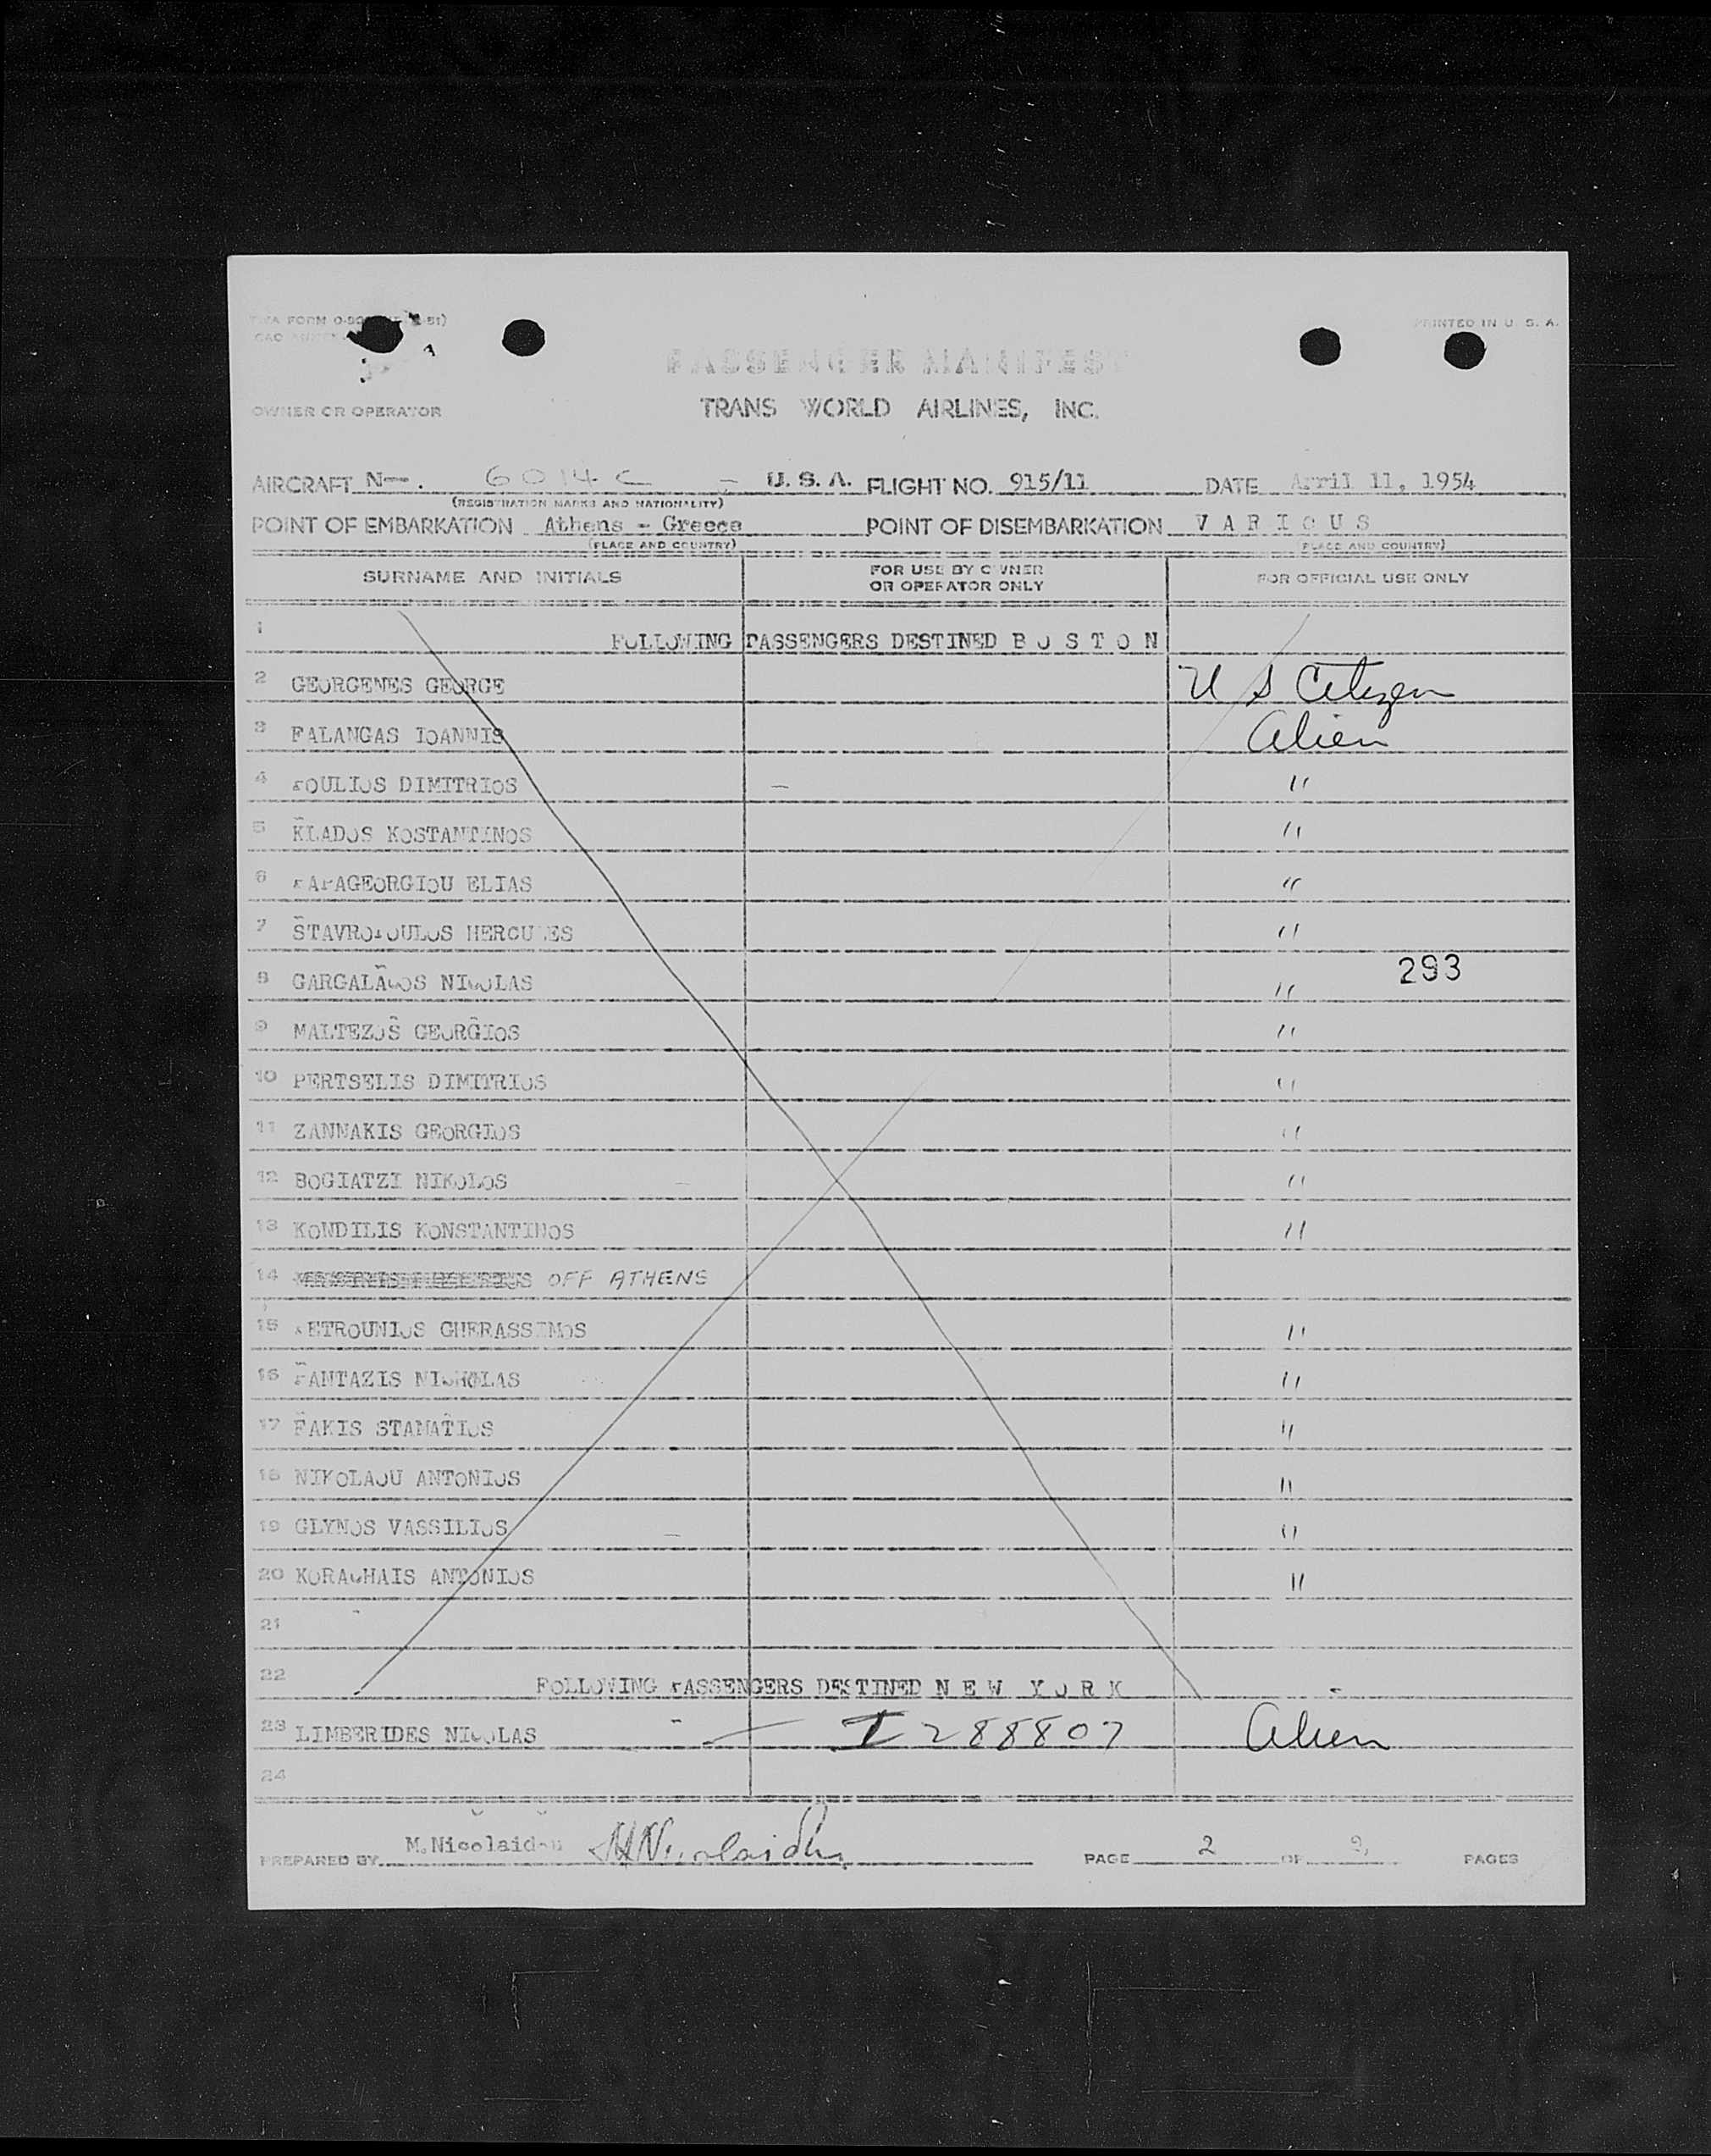 PRINTED IN U. S. A.
PASSENGER MANIFEST
OWNER OR OPERATOR TRANS WORLD AIRLINES, INC.
AIRCRAFT N 6014C - U.S.A. FLIGHT NO. 915/11 DATE April 11, 1954
(REGISTRATION MARKS AND NATIONALITY)
POINT OF EMBARKATION Athens - Greece POINT OF DISEMBARKATION V A R I O U S
(PLACE AND COUNTRY) (PLACE AND COUNTRY)
SURNAME AND INITIALS FOR USE BY OWNER OR OPERATOR ONLY FOR OFFICIAL USE ONLY
1 FOLLOWING PASSENGERS DESTINED B O S T O N
2 GEORGENES GEORGE U S Citizen
3 FALANGAS IOANNIS Alien
4 DIMITRIOS "
5 KLADOS KOSTANTINOS "
6 PAPAGEORGIOU ELIAS "
7 STAVROPOULOS HERCULES "
8 NICOLAS " 293
9 MALTEZOS GEORGIOS "
10 PERTSELIS DIMITRIOS "
11 ZANNAKIS GEORGIOS "
12 BOGIATZI NIKOLOS "
13 KONDILIS KONSTANTINOS "
14 OFF ATHENS
15 PETROUNIOS GHERASSIMOS "
16 FANTAZIS NICHOLAS "
17 FAKIS STAMATIOS "
18 NIKOLAOU ANTONIOS "
19 GLYNOS VASSILIOS "
20 KORACHAIS ANTONIOS "
21
22 FOLLOWING PASSENGERS DESTINED N E W Y O R K
23 LIMBERIDES NICOLAS I 288807 Alien
24
PREPARED BY M.Nicolaidou MNicolaidou PAGE 2 OF 2 PAGES